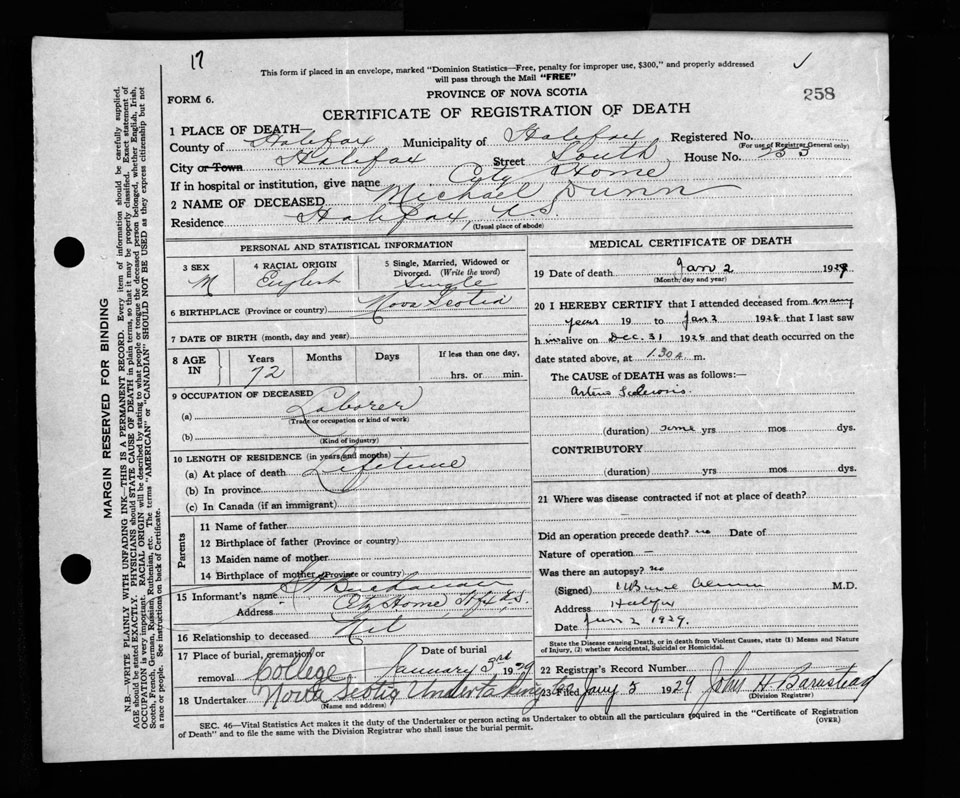 17
This form if placed in an envelope, marked "Dominion Statistics—Free, penalty for improper use, $300," and properly addressed
will pass through the Mail "FREE"
258
FORM 6.
PROVINCE OF NOVA SCOTIA
CERTIFICATE OF REGISTRATION OF DEATH
1 PLACE OF DEATH—
County of Halifax Municipality of Halifax Registered No.
(For use of Registrar General only)
City or Town Halifax Street South House No.
If in hospital or institution, give name City Home
2 NAME OF DECEASED Michael Dunn
Residence Halifax, N.S.
(Usual place of abode)
PERSONAL AND STATISTICAL INFORMATION
3 SEX M
4 RACIAL ORIGIN English
5 Single, Married, Widowed or Divorced. (Write the word) Single
6 BIRTHPLACE (Province or country) Nova Scotia
7 DATE OF BIRTH (month, day and year)
8 AGE IN Years 72 Months Days If less than one day, hrs. or min.
9 OCCUPATION OF DECEASED
(a) Laborer
(Trade or occupation or kind of work)
(b)
(Kind of industry)
10 LENGTH OF RESIDENCE (in years and months)
(a) At place of death Lifetime
(b) In province
(c) In Canada (if an immigrant)
Parents
11 Name of father
12 Birthplace of father (Province or country)
13 Maiden name of mother
14 Birthplace of mother (Province or country)
15 Informant's name
Address City Home Hfx N.S.
16 Relationship to deceased Nil
17 Place of burial, cremation or removal College
Date of burial January 3rd 1929
18 Undertaker Nova Scotia Undertaking Co
(Name and address)
MEDICAL CERTIFICATE OF DEATH
19 Date of death Jan 2 1929
(Month, day and year)
20 I HEREBY CERTIFY that I attended deceased from many
years 19 to Jan 2 1928 that I last saw
him alive on Dec. 31 1928 and that death occurred on the
date stated above, at 1.30 a. m.
The CAUSE of DEATH was as follows:—
Arterio Sclerosis.
(duration) some yrs mos dys.
CONTRIBUTORY
(duration) yrs mos dys.
21 Where was disease contracted if not at place of death?
Did an operation precede death? no Date of
Nature of operation —
Was there an autopsy? no
(Signed) M.D.
Address Halifax
Date Jan 2 1929.
State the Disease causing Death, or in death from Violent Causes, state (1) Means and Nature
of Injury, (2) whether Accidental, Suicidal or Homicidal.
22 Registrar's Record Number
Filed Jany 5 1929 John H Barnstead
(Division Registrar)
SEC. 46—Vital Statistics Act makes it the duty of the Undertaker or person acting as Undertaker to obtain all the particulars required in the "Certificate of Registration
of Death" and to file the same with the Division Registrar who shall issue the burial permit.
(OVER)
MARGIN RESERVED FOR BINDING
N.B.—WRITE PLAINLY WITH UNFADING INK—THIS IS A PERMANENT RECORD. Every item of information should be carefully supplied.
AGE should be stated EXACTLY. PHYSICIANS should STATE CAUSE OF DEATH in plain terms, so that it may be properly classified. Exact statement of
OCCUPATION is very important. RACIAL ORIGIN will be described by stating to what people or tongue the deceased person belonged, whether English, Irish,
Scotch, French, German, Russian, Ruthenian, etc. The terms "AMERICAN" or "CANADIAN" SHOULD NOT BE USED as they express citizenship but not
a race or people. See instructions on back of Certificate.